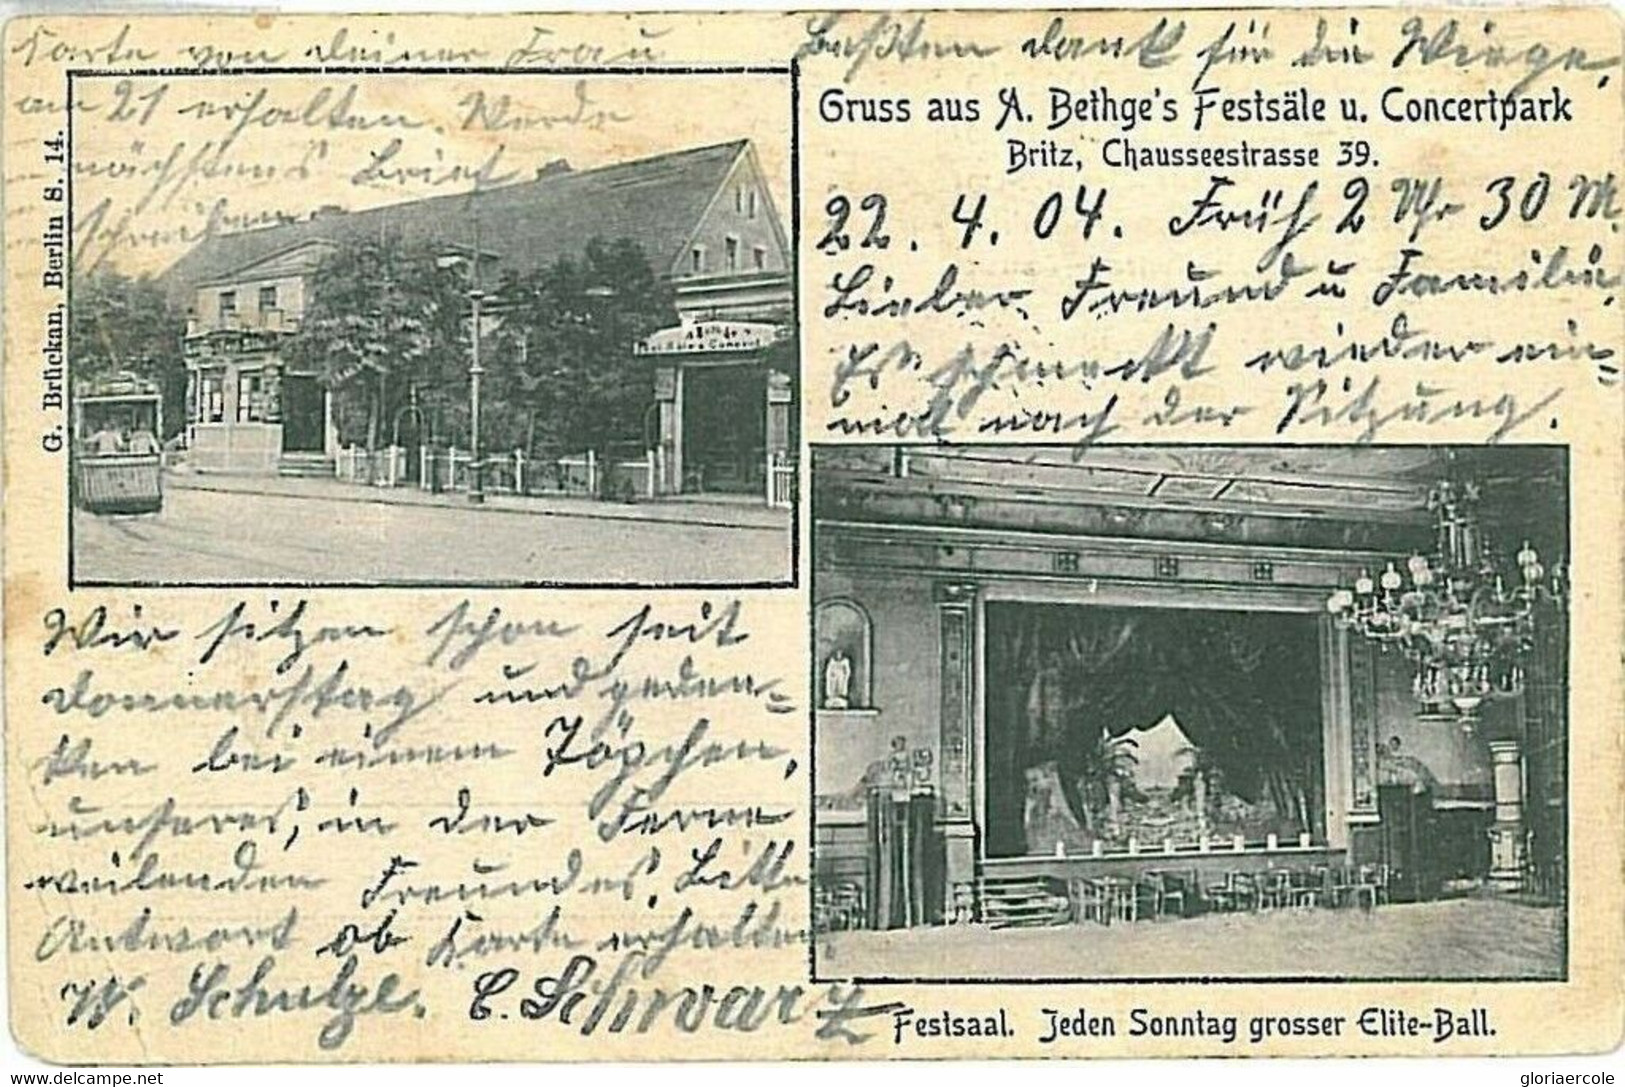 Karte von deiner Frau
am 21 erhalten. Werde
nächstens Brief
schreiben
Besten Dank für die Wiege.
Gruss aus A. Bethge's Festsäle u. Concertpark
Britz, Chausseestrasse 39.
22. 4. 04. Früh 2 Uhr 30 M.
Lieber Freund u Familie,
Es schmeckt wieder ein=
mal nach der Sitzung.
G. Brückan, Berlin S. 14.
Wir sitzen schon seit
Donnerstag und geden=
ken bei einem Töpchen,
unseres, in der Ferne
weilenden Freundes. Bitte
Antwort ob Karte erhalten.
W. Schulze. E. Schwarz
Festsaal. Jeden Sonntag grosser Elite-Ball.
www.delcampe.net
gloriaercole